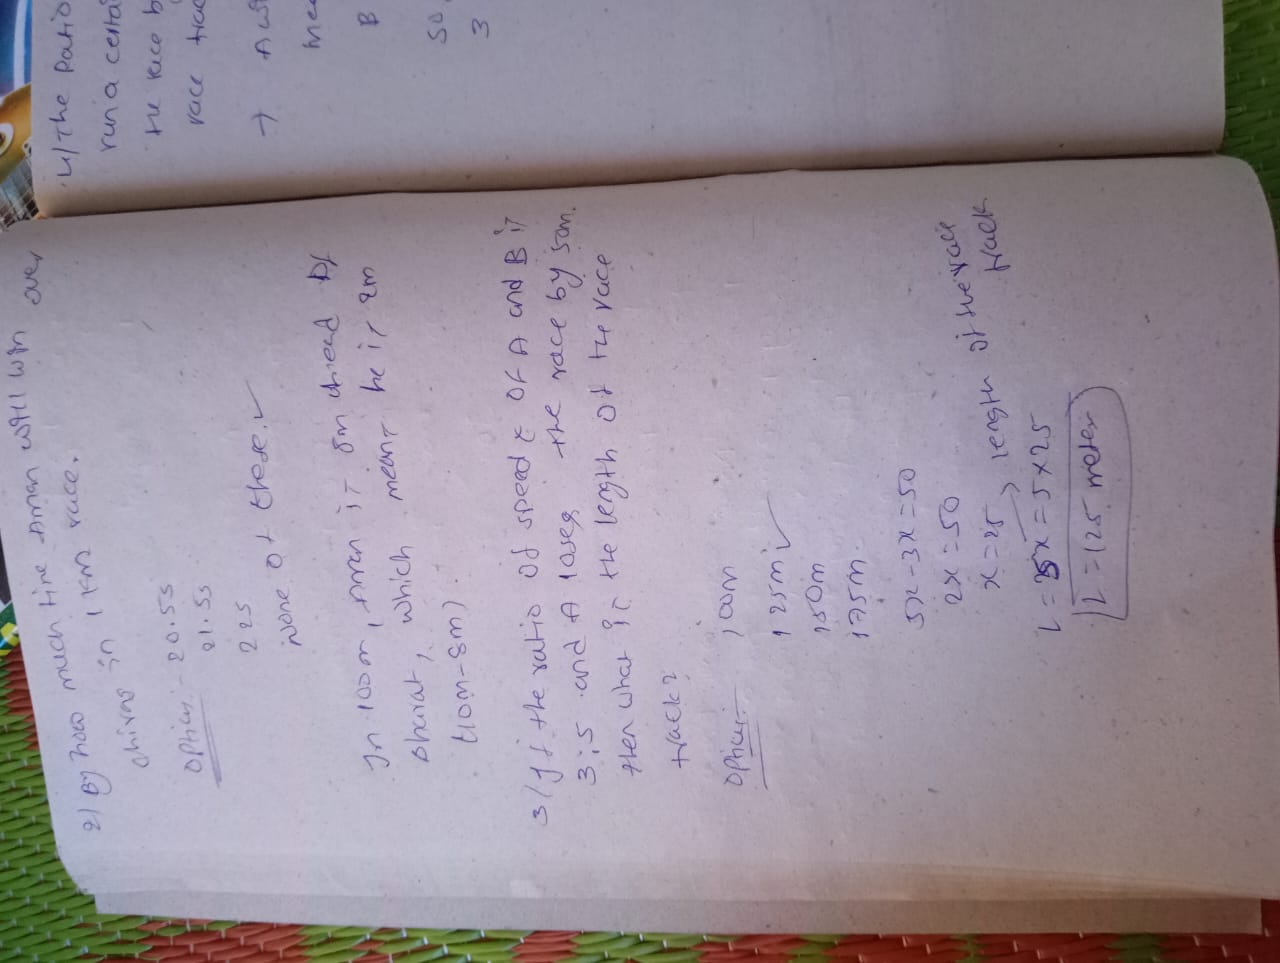 2) By how much time Aman will win over
chirag in 1 km race.
Option:- 20.5s
21.5s
22s
None of these. ✓
In 100m, Aman is 8m ahead of
bharat, which means he is 2m
(10m-8m).
3) If the ratio of speeds of A and B is
3:5 and A loses the race by 50m.
then what is the length of the race
track?
Option:- 100m
125m ✓
150m
175m.
5x-3x=50
2x=50
x=25
length of the race
track
L=5x=5x25
L=125 meter
4) The ratio
run a certai
the race b
race trac
→ A wi
mea
B
50
3